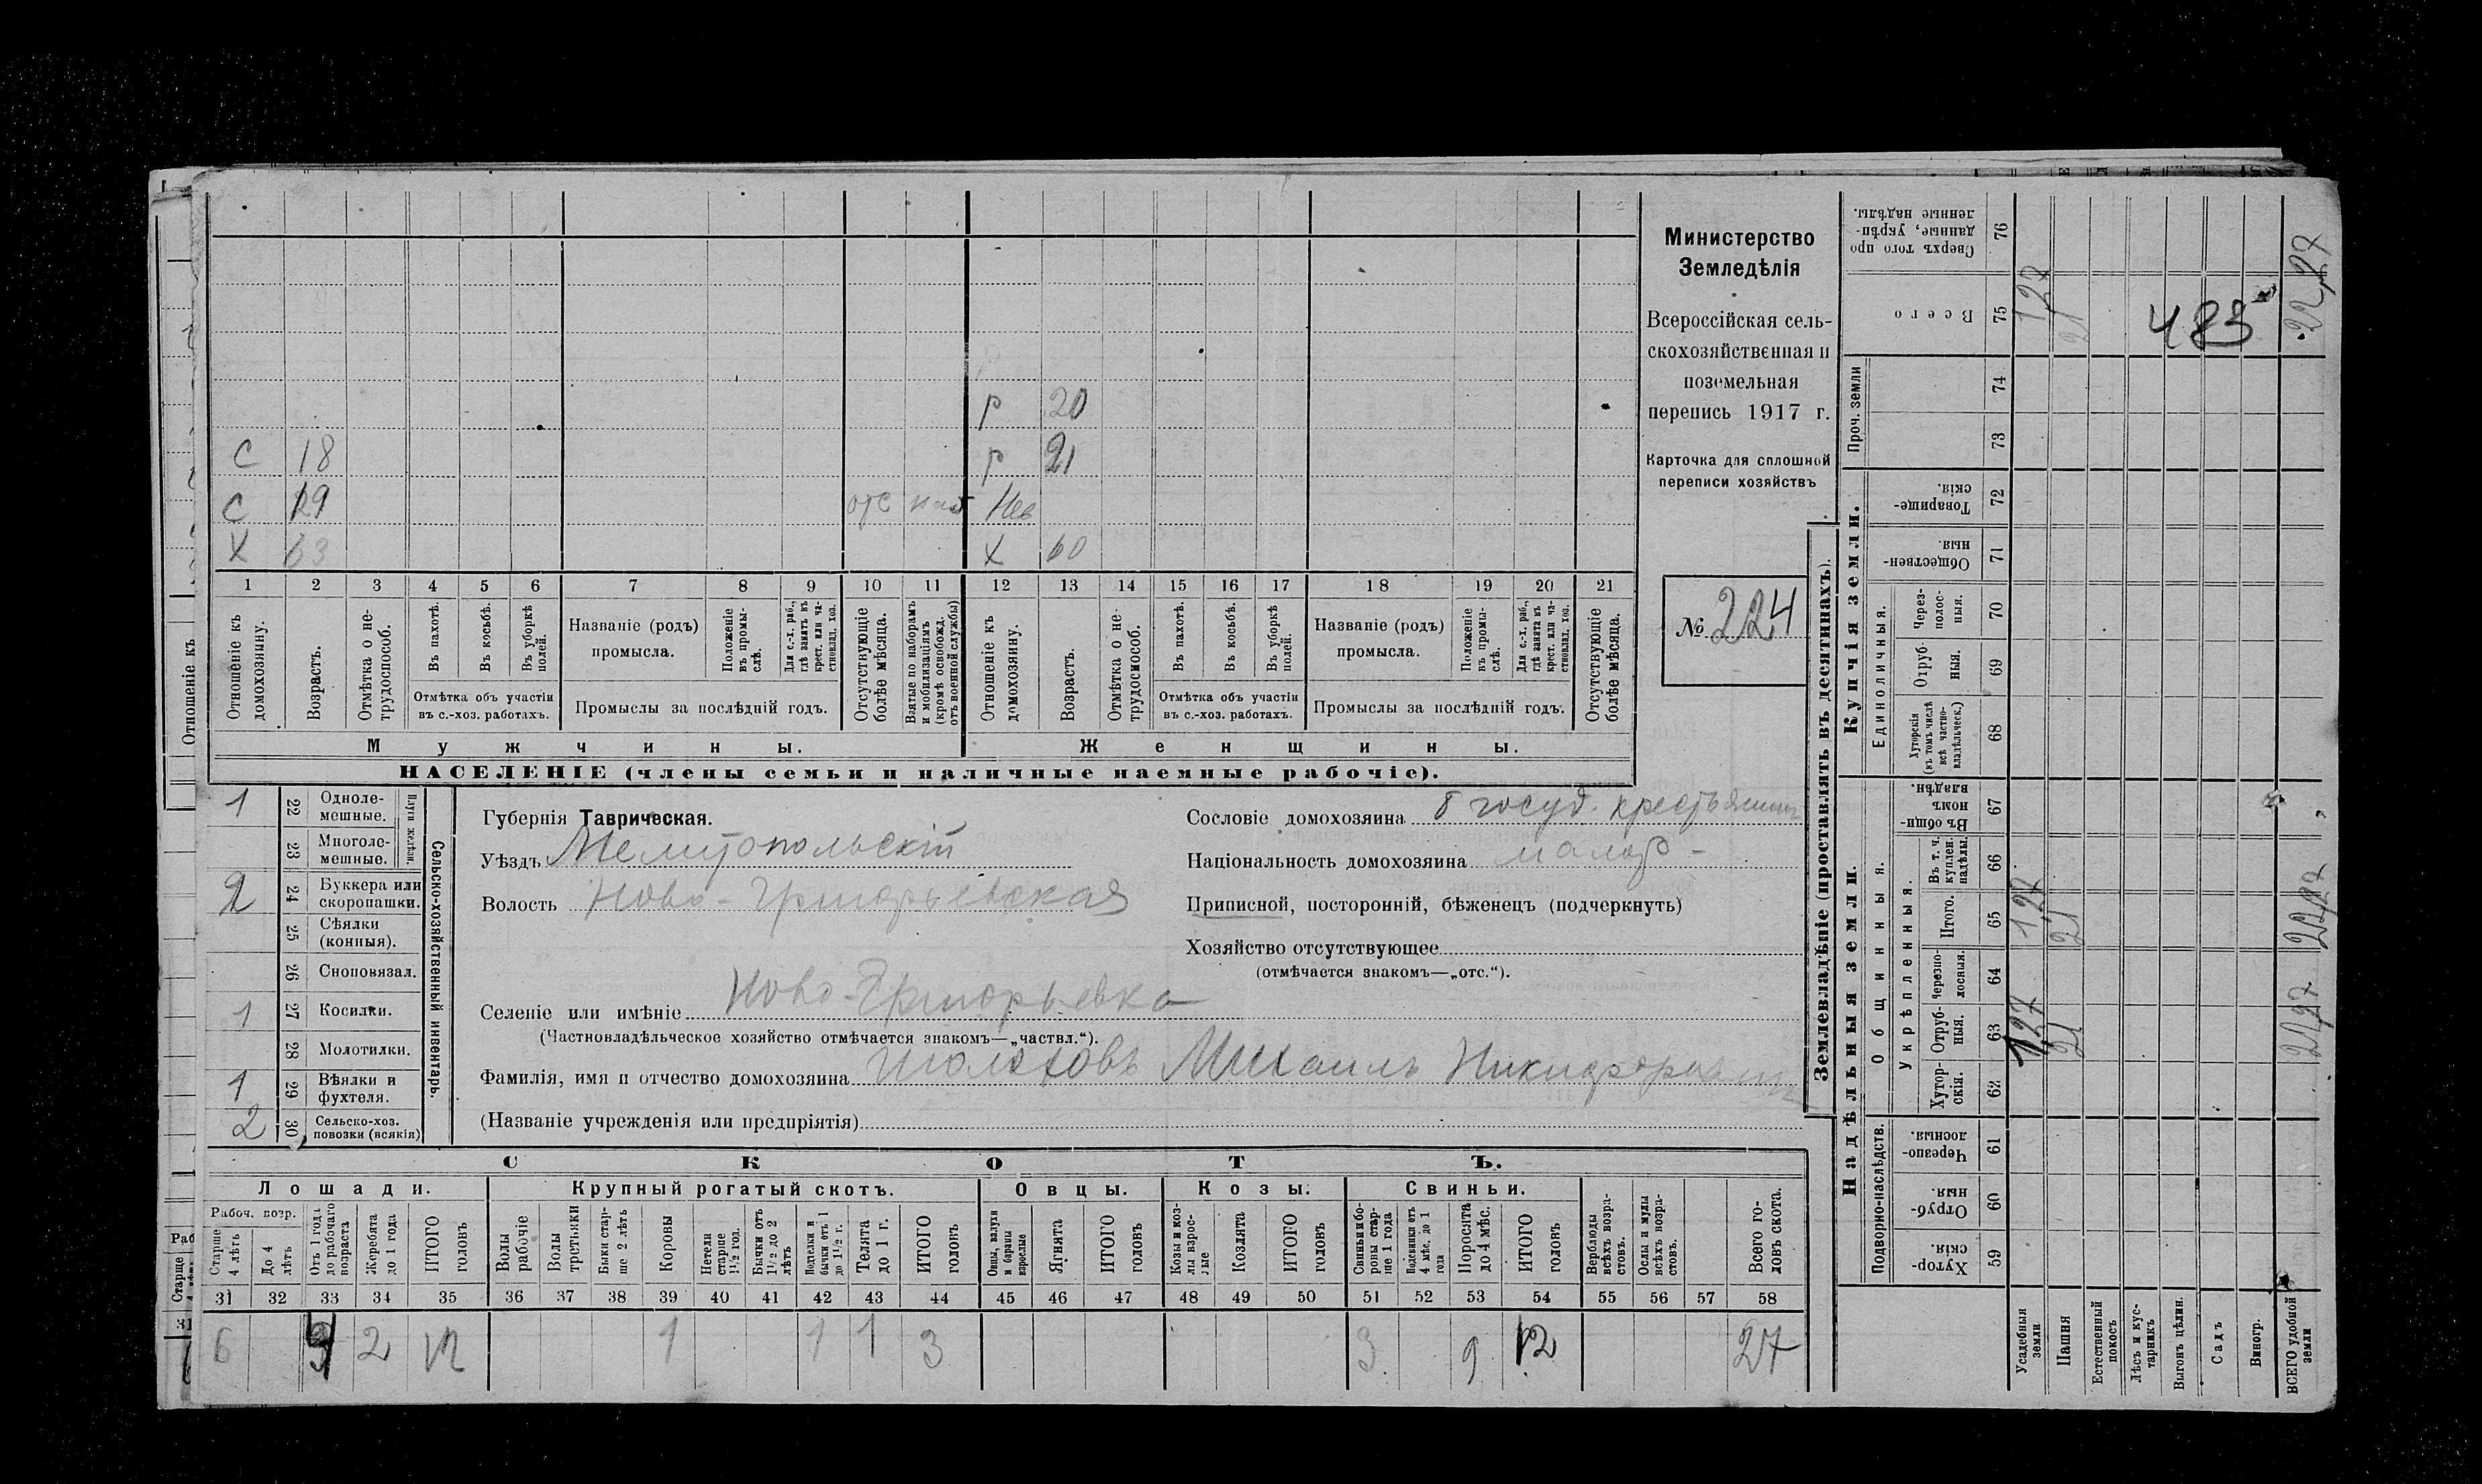 р 20
С 18 р 21
С 29 отс Нев
Х 63 х 60
1 2 3 4 5 6 7 8 9 10 11 12 13 14 15 16 17 18 19 20 21
Отношеніе къ домохозяину.
Возрастъ.
Отмѣтка о не-
трудоспособ.
Въ пахотѣ.
Въ косьбѣ.
Въ уборкѣ
полей.
Отмѣтка объ участіи
въ с.-хоз. работахъ.
Названіе (родъ)
промысла.
Положеніе
въ промы-
слѣ.
Для с.-х. раб.,
гдѣ занятъ въ
крест. или ча-
стновлад. хоз.
Промыслы за послѣдній годъ.
Отсутствующіе
болѣе мѣсяца.
Взятые по наборамъ
и мобилизаціямъ
(кромѣ освобожд.
отъ военной службы)
Отношеніе къ
домохозяину.
Возрастъ.
Отмѣтка о не-
трудоспособ.
Въ пахотѣ.
Въ косьбѣ.
Въ уборкѣ
полей.
Отмѣтка объ участіи
въ с.-хоз. работахъ.
Названіе (родъ)
промысла.
Положеніе
въ промы-
слѣ.
Для с.-х. раб.,
гдѣ занята въ
крест. или ча-
стновлад. хоз.
Промыслы за послѣдній годъ.
Отсутствующіе
болѣе мѣсяца.
Мужчины. Женщины.
НАСЕЛЕНІЕ (члены семьи и наличные наемные рабочіе).
Министерство
Земледѣлія
Всероссійская сель-
скохозяйственная и
поземельная
перепись 1917 г.
Карточка для сплошной
переписи хозяйствъ
№ 224
1 22 Одноле-
мешные.
23 Многоле-
мешные.
Плуги желѣзн.
2 24 Буккера или
скоропашки.
25 Сѣялки
(конныя).
26 Сноповязал.
1 27 Косилки.
28 Молотилки.
1 29 Вѣялки и
фухтеля.
2 30 Сельско-хоз.
повозки (всякія)
Сельско-хозяйственный инвентарь.
Губернія Таврическая.
Уѣздъ Мелитопольскій
Волость Ново-Григорьевская
Селеніе или имѣніе Ново-Григорьевка
(Частновладѣльческое хозяйство отмѣчается знакомъ—„частвл.“).
Фамилія, имя и отчество домохозяина Шолоховъ Михаилъ Никифоровичъ
(Названіе учрежденія или предпріятія)
Сословіе домохозяина б госуд. крестьянинъ
Національность домохозяина малор-
Приписной, посторонній, бѣженецъ (подчеркнуть)
Хозяйство отсутствующее
(отмѣчается знакомъ—„отс.“).
СКОТЪ.
Лошади. Крупный рогатый скотъ. Овцы. Козы. Свиньи.
Рабоч. возр.
Старше
4 лѣтъ
До 4
лѣтъ
Отъ 1 года
до рабочаго
возраста
Жеребята
до 1 года
ИТОГО
головъ
Волы
рабочіе
Волы
третьяки
Быки стар-
ше 2 лѣтъ
Коровы
Нетели
старше
1½ год.
Бычки отъ
1½ до 2
лѣтъ
Подтелки и
бычки отъ 1
до 1½ г.
Телята
до 1 г.
ИТОГО
головъ
Овцы, валухи
и бараны
взрослые
Ягнята
ИТОГО
головъ
Козы и коз-
лы взрос-
лые
Козлята
ИТОГО
головъ
Свиньи и бо-
ровы стар-
ше 1 года
Подсвинки отъ
4 мѣс. до 1
года
Поросята
до 4 мѣс.
ИТОГО
головъ
Верблюды
всѣхъ возра-
стовъ.
Ослы и мулы
всѣхъ возра-
стовъ.
Всего го-
ловъ скота.
31 32 33 34 35 36 37 38 39 40 41 42 43 44 45 46 47 48 49 50 51 52 53 54 55 56 57 58
6 4 2 12 1 1 1 3 3 9 12 27
Землевладѣніе (проставлять въ десятинахъ).
Надѣльныя земли. Купчія земли. Проч. земли
Подворно-наслѣдств.
Общинныя.
Укрѣпленныя.
Единоличныя.
Хутор-
скія. 59
Отруб-
ныя. 60
Черезпо-
лосныя. 61
Хутор-
скія. 62
Отруб-
ныя. 63
Черезпо-
лосныя. 64
Итого. 65
Въ т. ч.
куплен.
надѣлы. 66
Въ общи-
номъ
владѣн. 67
Хуторскія
(въ томъ числѣ
всѣ частно-
владѣльческ.) 68
Отруб-
ныя. 69
Через-
полос-
ныя. 70
Обществен-
ныя. 71
Товарище-
скія. 72
73
74
Всего 75
Сверхъ того про
данные, укрѣп-
ленные надѣлы. 76
Усадебныя
земли 1,27 1,27 1,27
Пашня 21 21 21
Естественный
покосъ
Лѣсъ и кус-
тарникъ
Выгонъ цѣлин.
Садъ
Виногр.
ВСЕГО удобной
земли 22,27 22,27 22,27
483